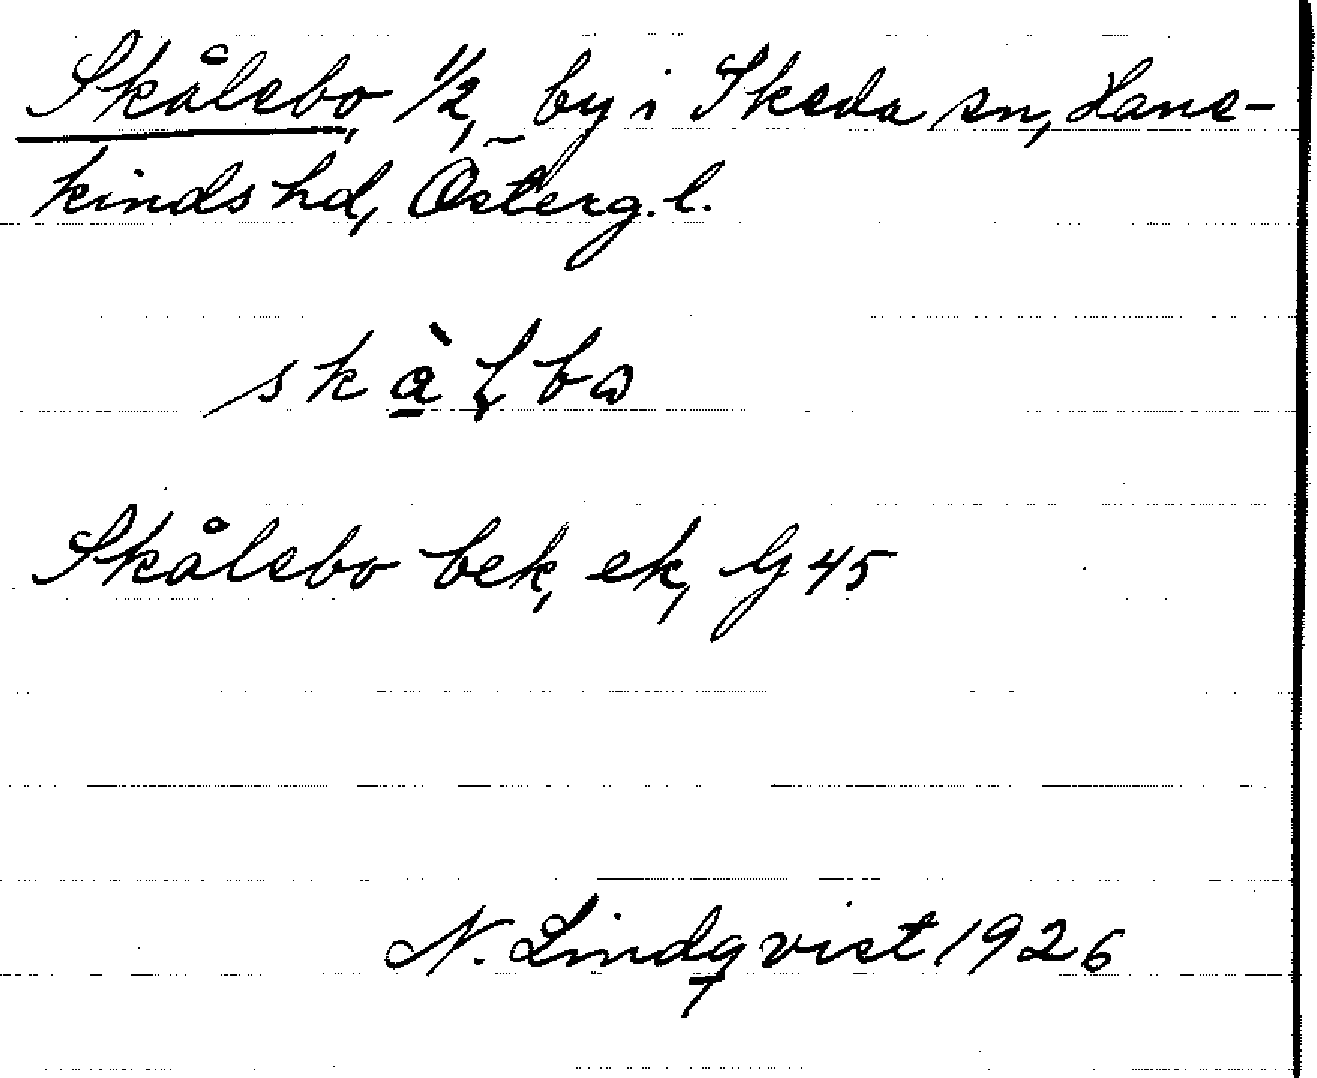 Skålebo, 1/2, by i Skeda sn, Hane-
kinds hd, Österg. l.
skàlbo
Skålebo bek, ek, G 45
N. Lindqvist 1926